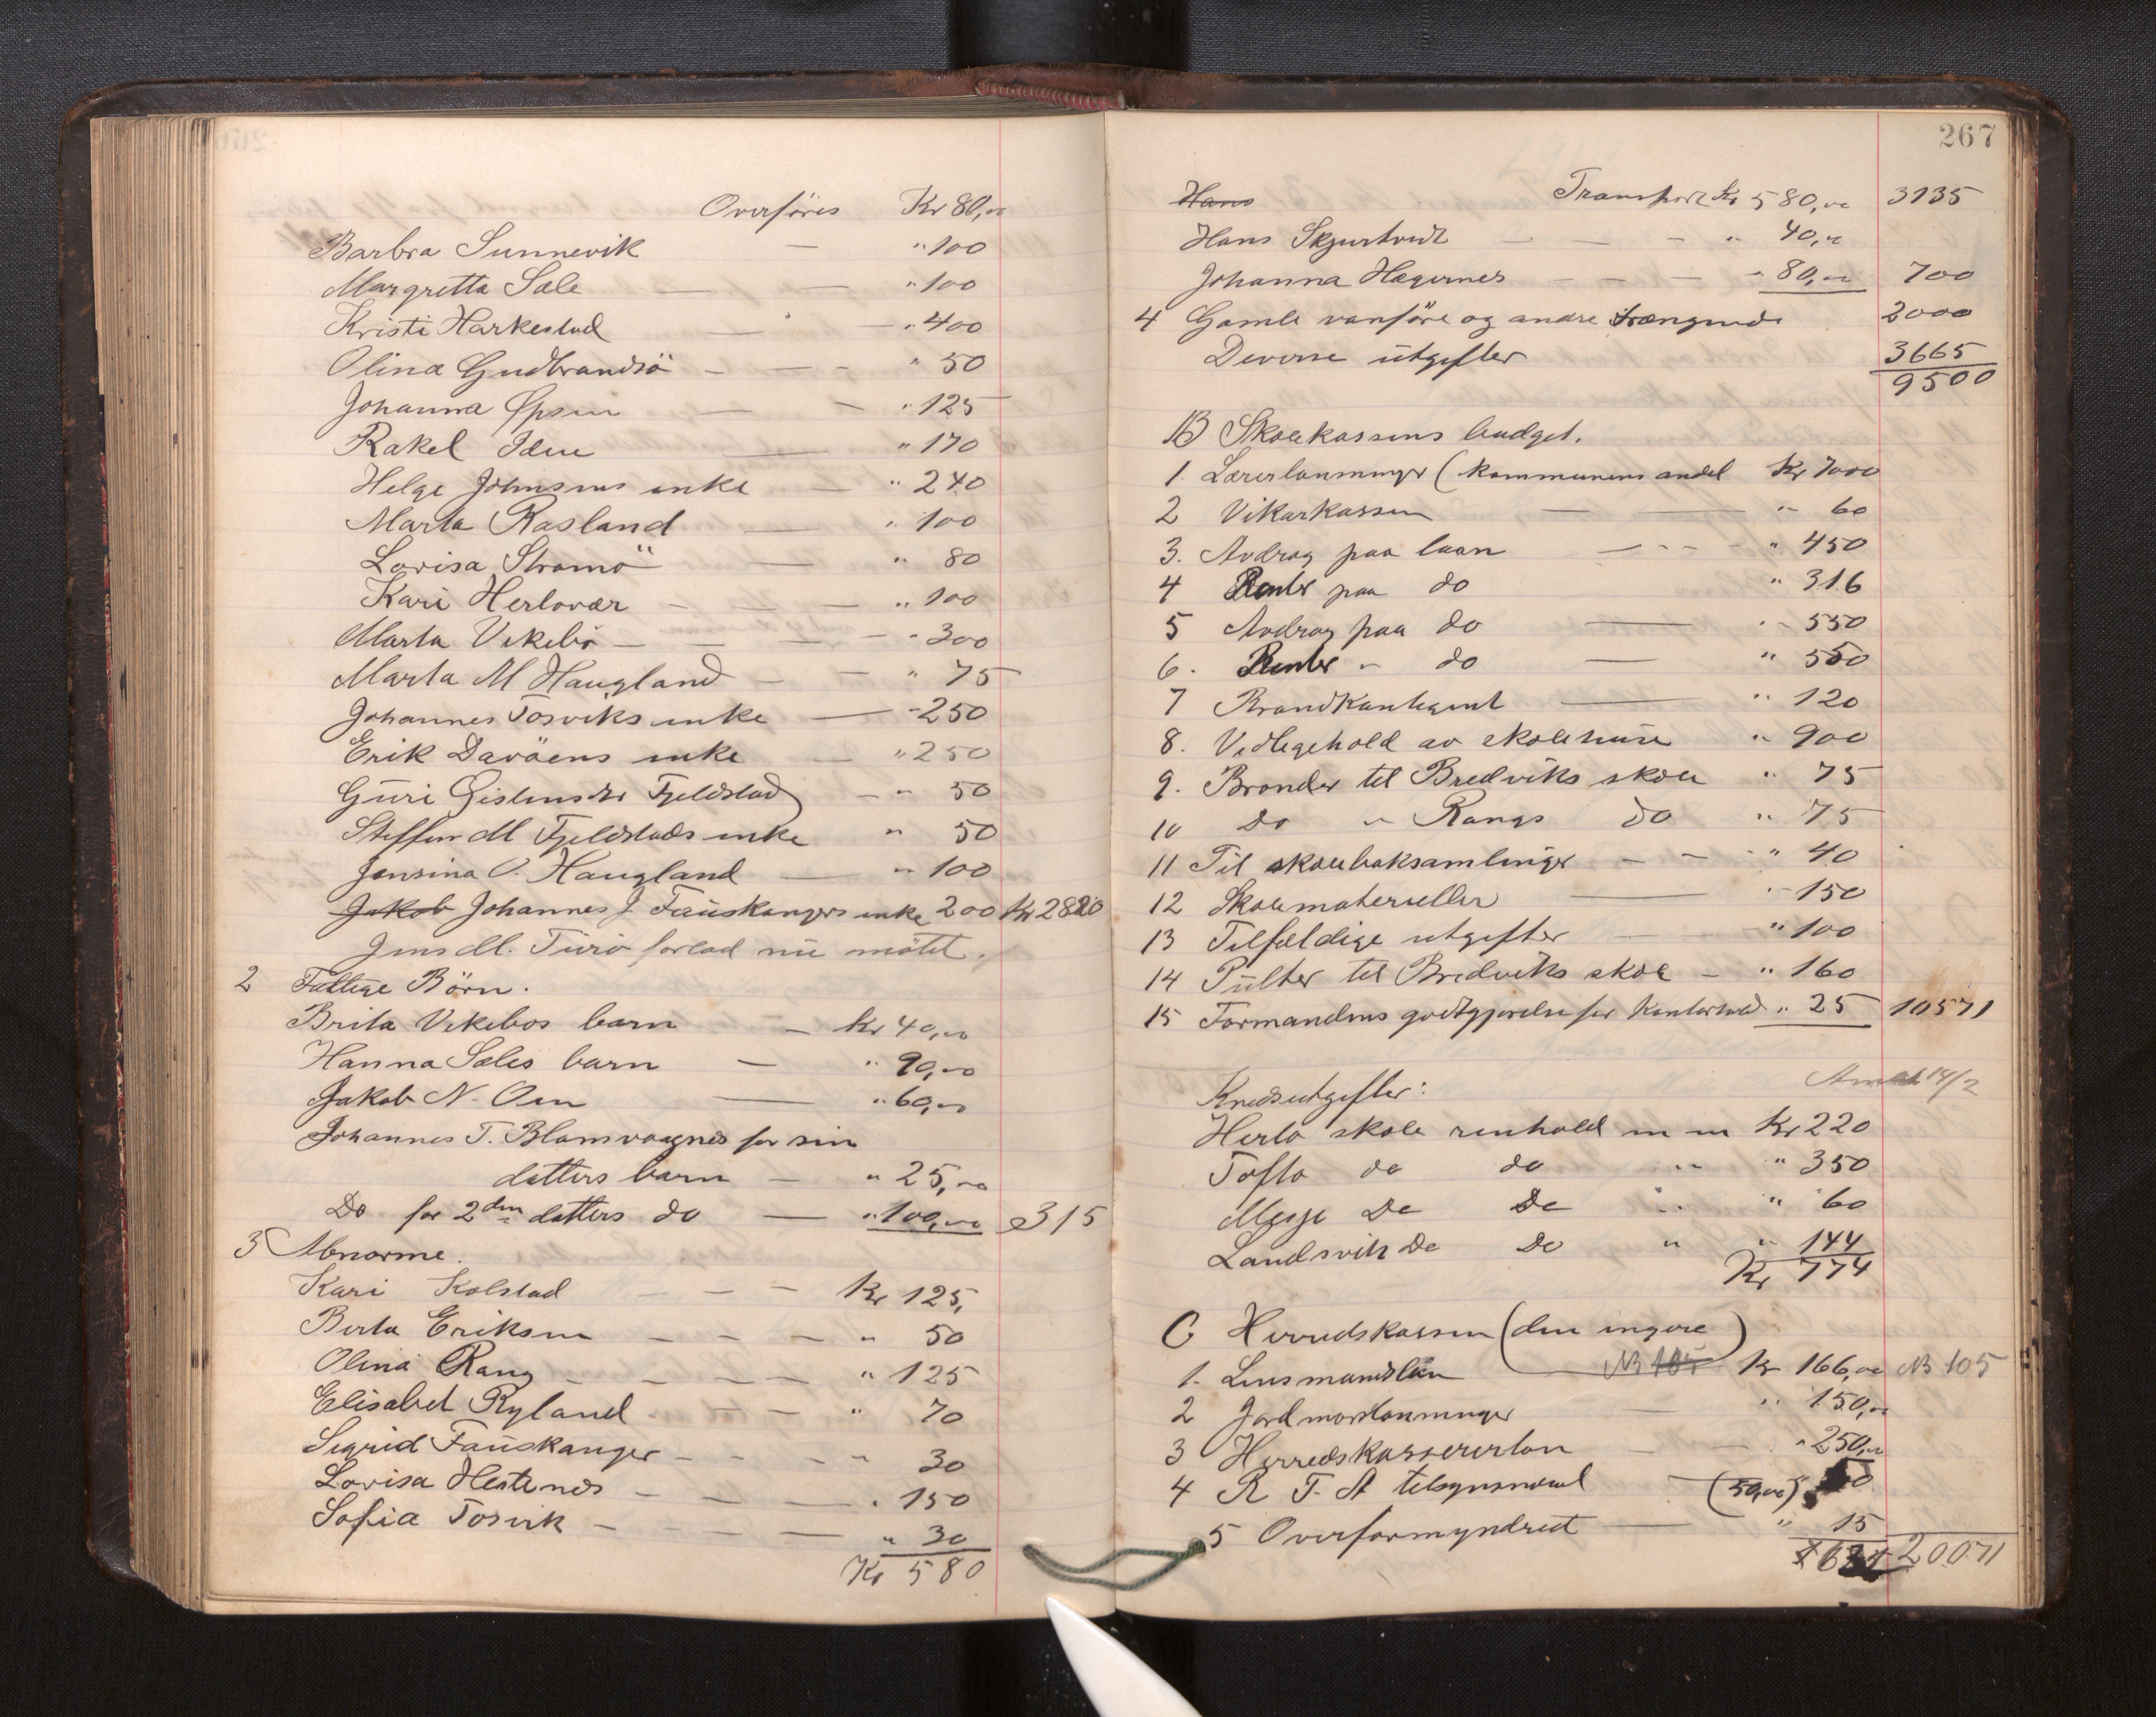 Overföres Kr 80,00
Barbra Sunnevik — " 100
Margretta Sæle — — " 100
Kristi Harkestad — — " 400
Olina Gudbrandsö — — — " 50
Johanna Øpsen — — " 125
Rakel Iden — " 170
Helge Johnsens enke — " 240
Marta Rasland — " 100
Lovisa Stromö — " 80
Kari Herlovær — — — " 100
Marta Vikebö — — — — " 300
Marta M Haugland — — " 75
Johannes Torsviks enke — " 250
Erik Davöens enke — " 250
Guri Gislensdtr Fjeldstad — " 50
Steffen M Fjeldstads enke " 50
Jensina O. Haugland — " 100
Jakob Johannes J. Fauskangers enke 200 Kr 2820
Jens M. Turö forlod nu mötet.
2 Fattige Börn.
Brita Vikebös barn — Kr 40,00
Hanna Sæles barn — " 90,00
Jakob N. Oen — " 60,00
Johannes T. Blomvaagnes for sin
datters barn — " 25,00
Do for 2den datters do — " 100,00 315
3 Abnorme.
Kari Kolstad — — — Kr 125,
Berta Eriksen — — — " 50
Olina Rang — — — — " 125
Elisabet Ryland — — — " 70
Sigrid Fauskanger — — — " 30
Lovisa Hestenes — — — " 150
Sofia Torsvik — — — — " 30
Kr 580
267
Hans Transport Kr 580,00 3135
Hans Skjurtveit — — — " 40,00
Johanna Hægernes — — — " 80,00 700
4 Gamle vanföre og andre trængende 2000
Deverse utgifter 3665
9500
B Skolekassens budget.
1. Lærerlønninger (kommunens andel Kr 7000
2 Vikarkassen — — " 60
3. Avdrag paa laan — - - - " 450
4 Renter paa do " 316
5 Avdrag paa do — " 550
6. Renter " do — " 550
7 Brandkontegent — " 120
8. Vedlegehold av skolehuse " 900
9. Bronder til Bredviks skole " 75
10 Do " Rangs do " 75
11 Til skoleboksamlinger — — " 40
12 Skolematerieller — " 150
13 Tilfældige utgifter — " 100
14 Pulter til Bredviks skole — " 160
15 Formandens godtgjørelse for Kontorhold " 25 10571
14/2
Kredsutgifter:
Herlo skole renhold m m Kr 220
Tofto do do " " 350
Meije Do Do " " 60
Landsvik Do Do " " 144
Kr 774
C Herredskassen (den ingere)
1. Lensmandsløn NB 105 Kr 166,00 NB 105
2 Jordmorlønninger — " 150,00
3 Herredskassererløn — — " 250,00
4 R T. A tilsynsnævd — (50,00) 50
5 Overformynderiet — " 15
20071